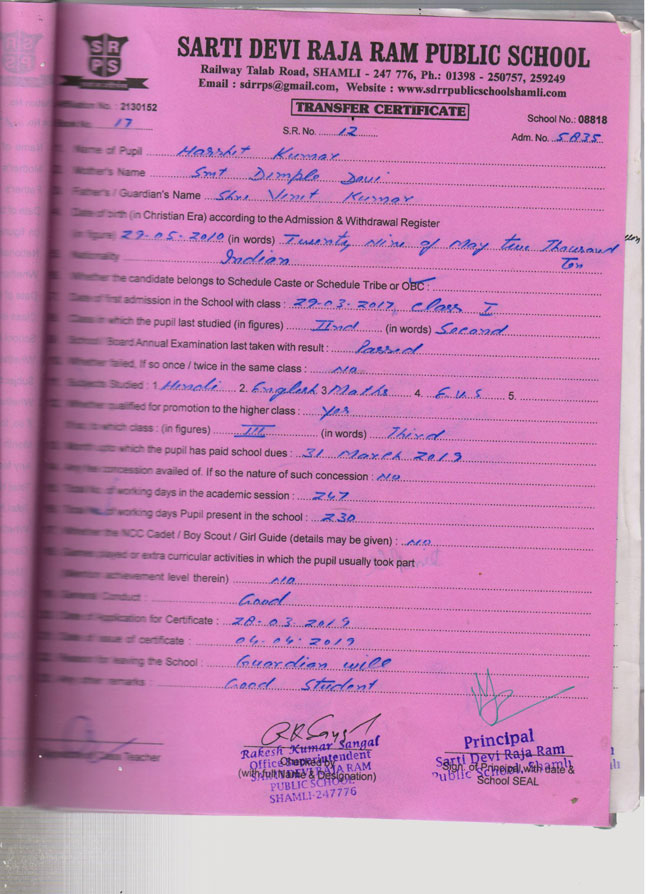 SRPS
SARTI DEVI RAJA RAM PUBLIC SCHOOL
Railway Talab Road, SHAMLI - 247 776, Ph.: 01398 - 250757, 259249
Email : sdrrps@gmail.com, Website : www.sdrrpublicschoolshamli.com
TRANSFER CERTIFICATE
Affiliation No. : 2130152
School No.: 08818
Book No. 17
S.R. No. 12
Adm. No. 5835
1. Name of Pupil Harshit Kumar
2. Mother's Name Smt Dimple Devi
3. Father's / Guardian's Name Shri Vinit Kumar
4. Date of birth (in Christian Era) according to the Admission & Withdrawal Register
(in figure) 29-05-2010 (in words) Twenty Nine of May Two Thousand Ten
5. Nationality Indian
6. Whether the candidate belongs to Schedule Caste or Schedule Tribe or OBC :
7. Date of first admission in the School with class : 29-03-2017, Class I
8. Class in which the pupil last studied (in figures) IInd (in words) Second
9. School / Board Annual Examination last taken with result : Passed
10. Whether failed, If so once / twice in the same class : No
11. Subjects Studied : 1. Hindi 2. English 3 Maths 4. E.V.S 5.
12. Whether qualified for promotion to the higher class : Yes
If so, to which class : (in figures) III (in words) Third
13. Month upto which the pupil has paid school dues : 31 March 2019
14. Any fee concession availed of. If so the nature of such concession : No
15. Total No. of working days in the academic session : 247
16. Total No. of working days Pupil present in the school : 230
17. Whether the NCC Cadet / Boy Scout / Girl Guide (details may be given) : No
18. Games played or extra curricular activities in which the pupil usually took part
(Mention achievement level therein) No
19. General Conduct : Good
20. Date of Application for Certificate : 28-03-2019
21. Date of issue of certificate : 04-04-2019
22. Reason for leaving the School : Guardian will
23. remarks : Good Student
Class Teacher
Rakesh Kumar Sangal
Office Superintendent
Checked by
SARTI DEVI RAJA RAM
(with full Name & Designation)
PUBLIC SCHOOL
SHAMLI-247776
Principal
Sarti Devi Raja Ram
Sign. of Principal with date &
Public School, Shamli
School SEAL